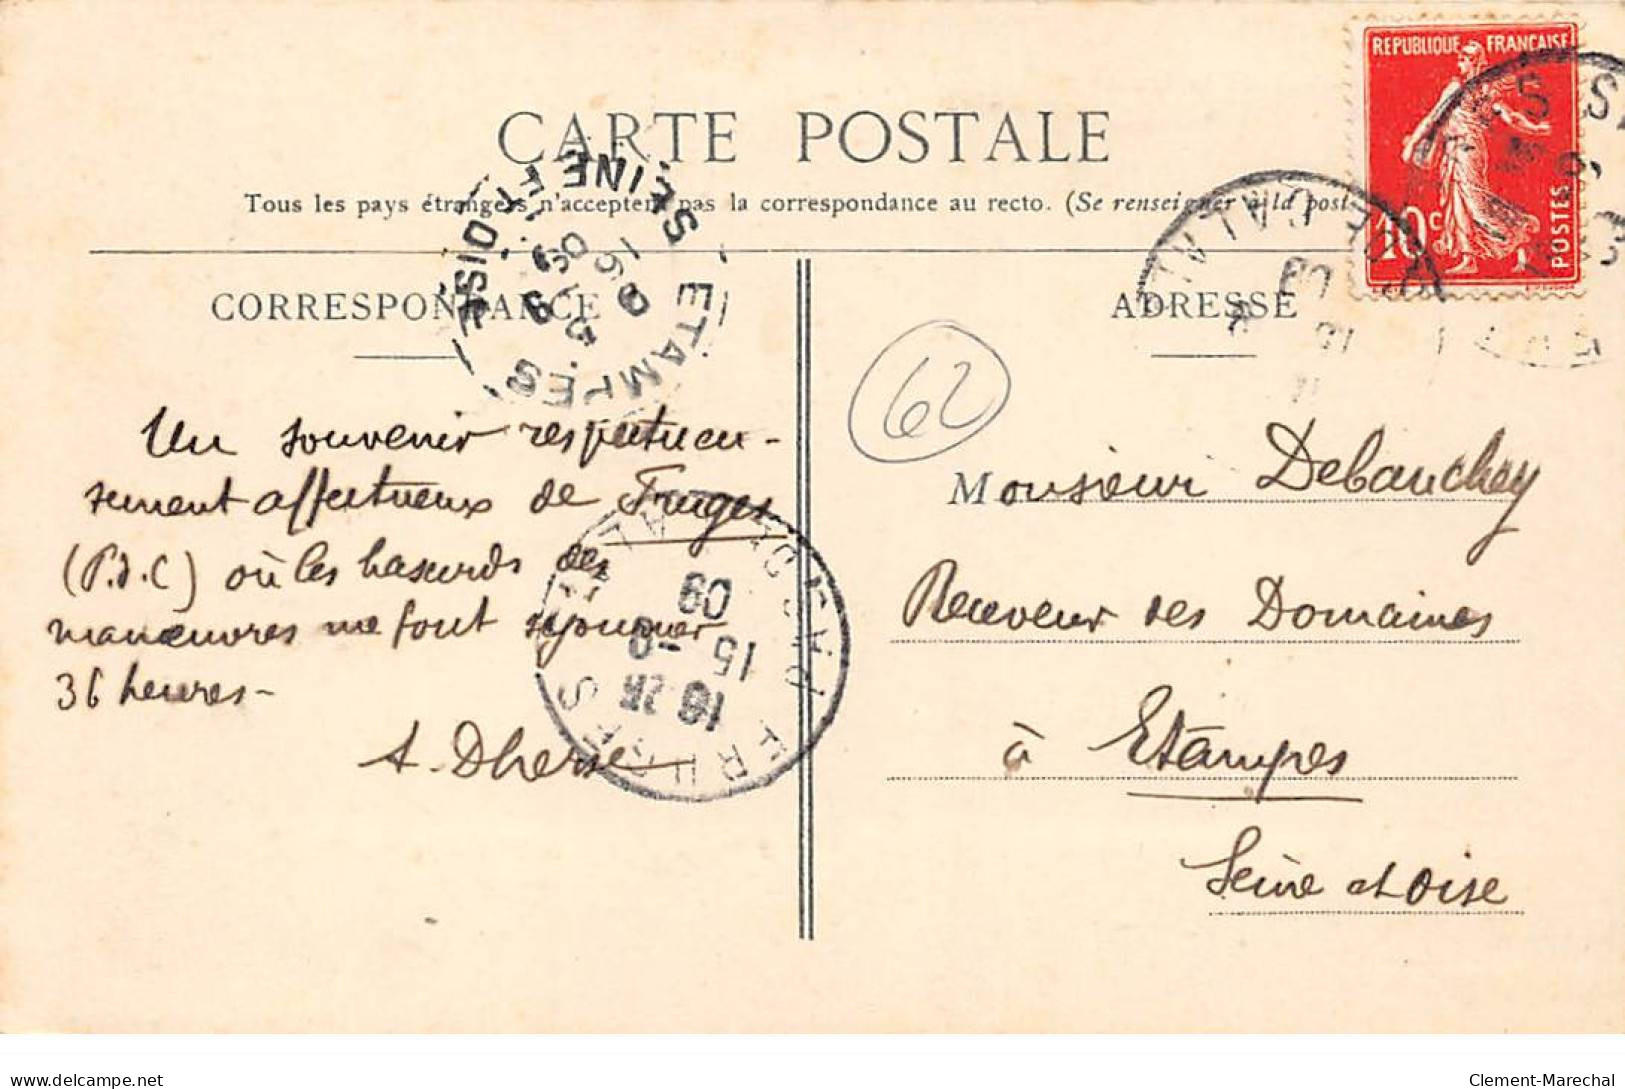 CARTE POSTALE
Tous les pays étrangers n'acceptent pas la correspondance au recto. (Se renseigner à la poste
CORRESPONDANCE
ADRESSE
REPUBLIQUE FRANÇAISE
10c
POSTES
62
Un souvenir respectueu-
sement affectueux de Fruges
(P.d.C) où les hasards des
manœuvres me font séjourner
36 heures-
A. Dherse
Monsieur Debauchey
Receveur des Domaines
à Etampes
Seine et Oise
ETAMPES
SEINE ET OISE
16 -9 09
FRUGES
PAS DE CALAIS
16 25
15 -9
09
delcampe.net
Clement-Marechal